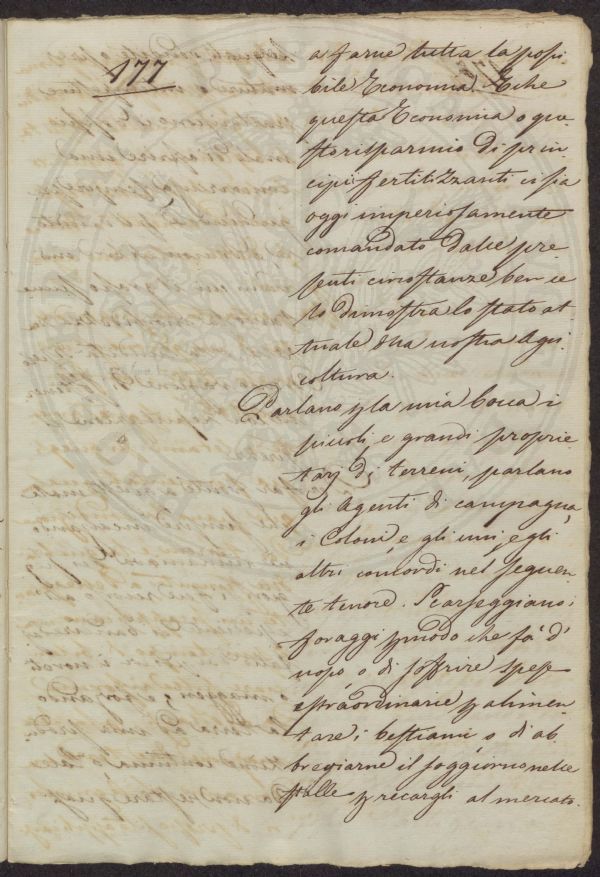 177
a farne tutta la possi
bile Economia. E che
questa Economia o que
sto risparmio di prin-
cipi fertilizzanti ci sia
oggi imperiosamente
comandato dalle pre
senti circostanze ben ce
lo dimostra lo stato at
tuale della nostra Agri.
coltura.
Parlano p la mia bocca i
piccoli, e grandi proprie
tarj di terreni, parlano
gli Agenti di campagna,
i Coloni e gli uni, e gli
altri concordi nel seguen
te tenore. Scarseggiano i
foraggi p modo che fà d'
uopo o di soffrire spese
estraordinarie p alimen-
tare i bestiami o di ab
breviarne il soggiorno nelle
stalle p recargli al mercato.